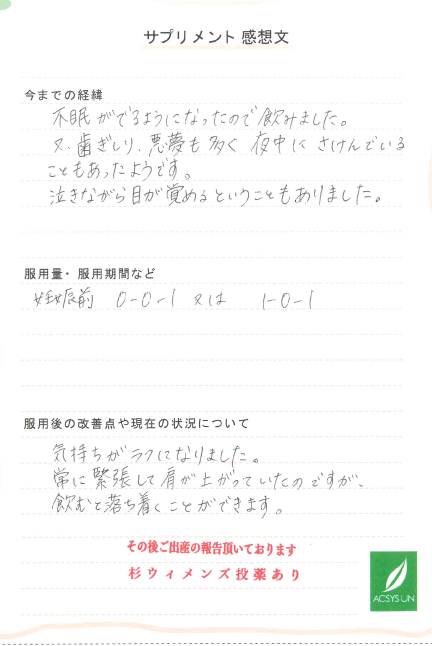 サプリメント 感想文
今までの経緯
不眠がでるようになったので飲みました。
又、歯ぎしり、悪夢も多く 夜中に さけんでいる
こともあったようです。
泣きながら目が覚めるということもありました。
服用量・服用期間など
妊娠前 0-0-1 又は 1-0-1
服用後の改善点や現在の状況について
気持ちがラクになりました。
常に緊張して肩が上がっていたのですが、
飲むと落ち着くことができます。
その後ご出産の報告頂いております
杉ウィメンズ投薬あり
ACSYSUN